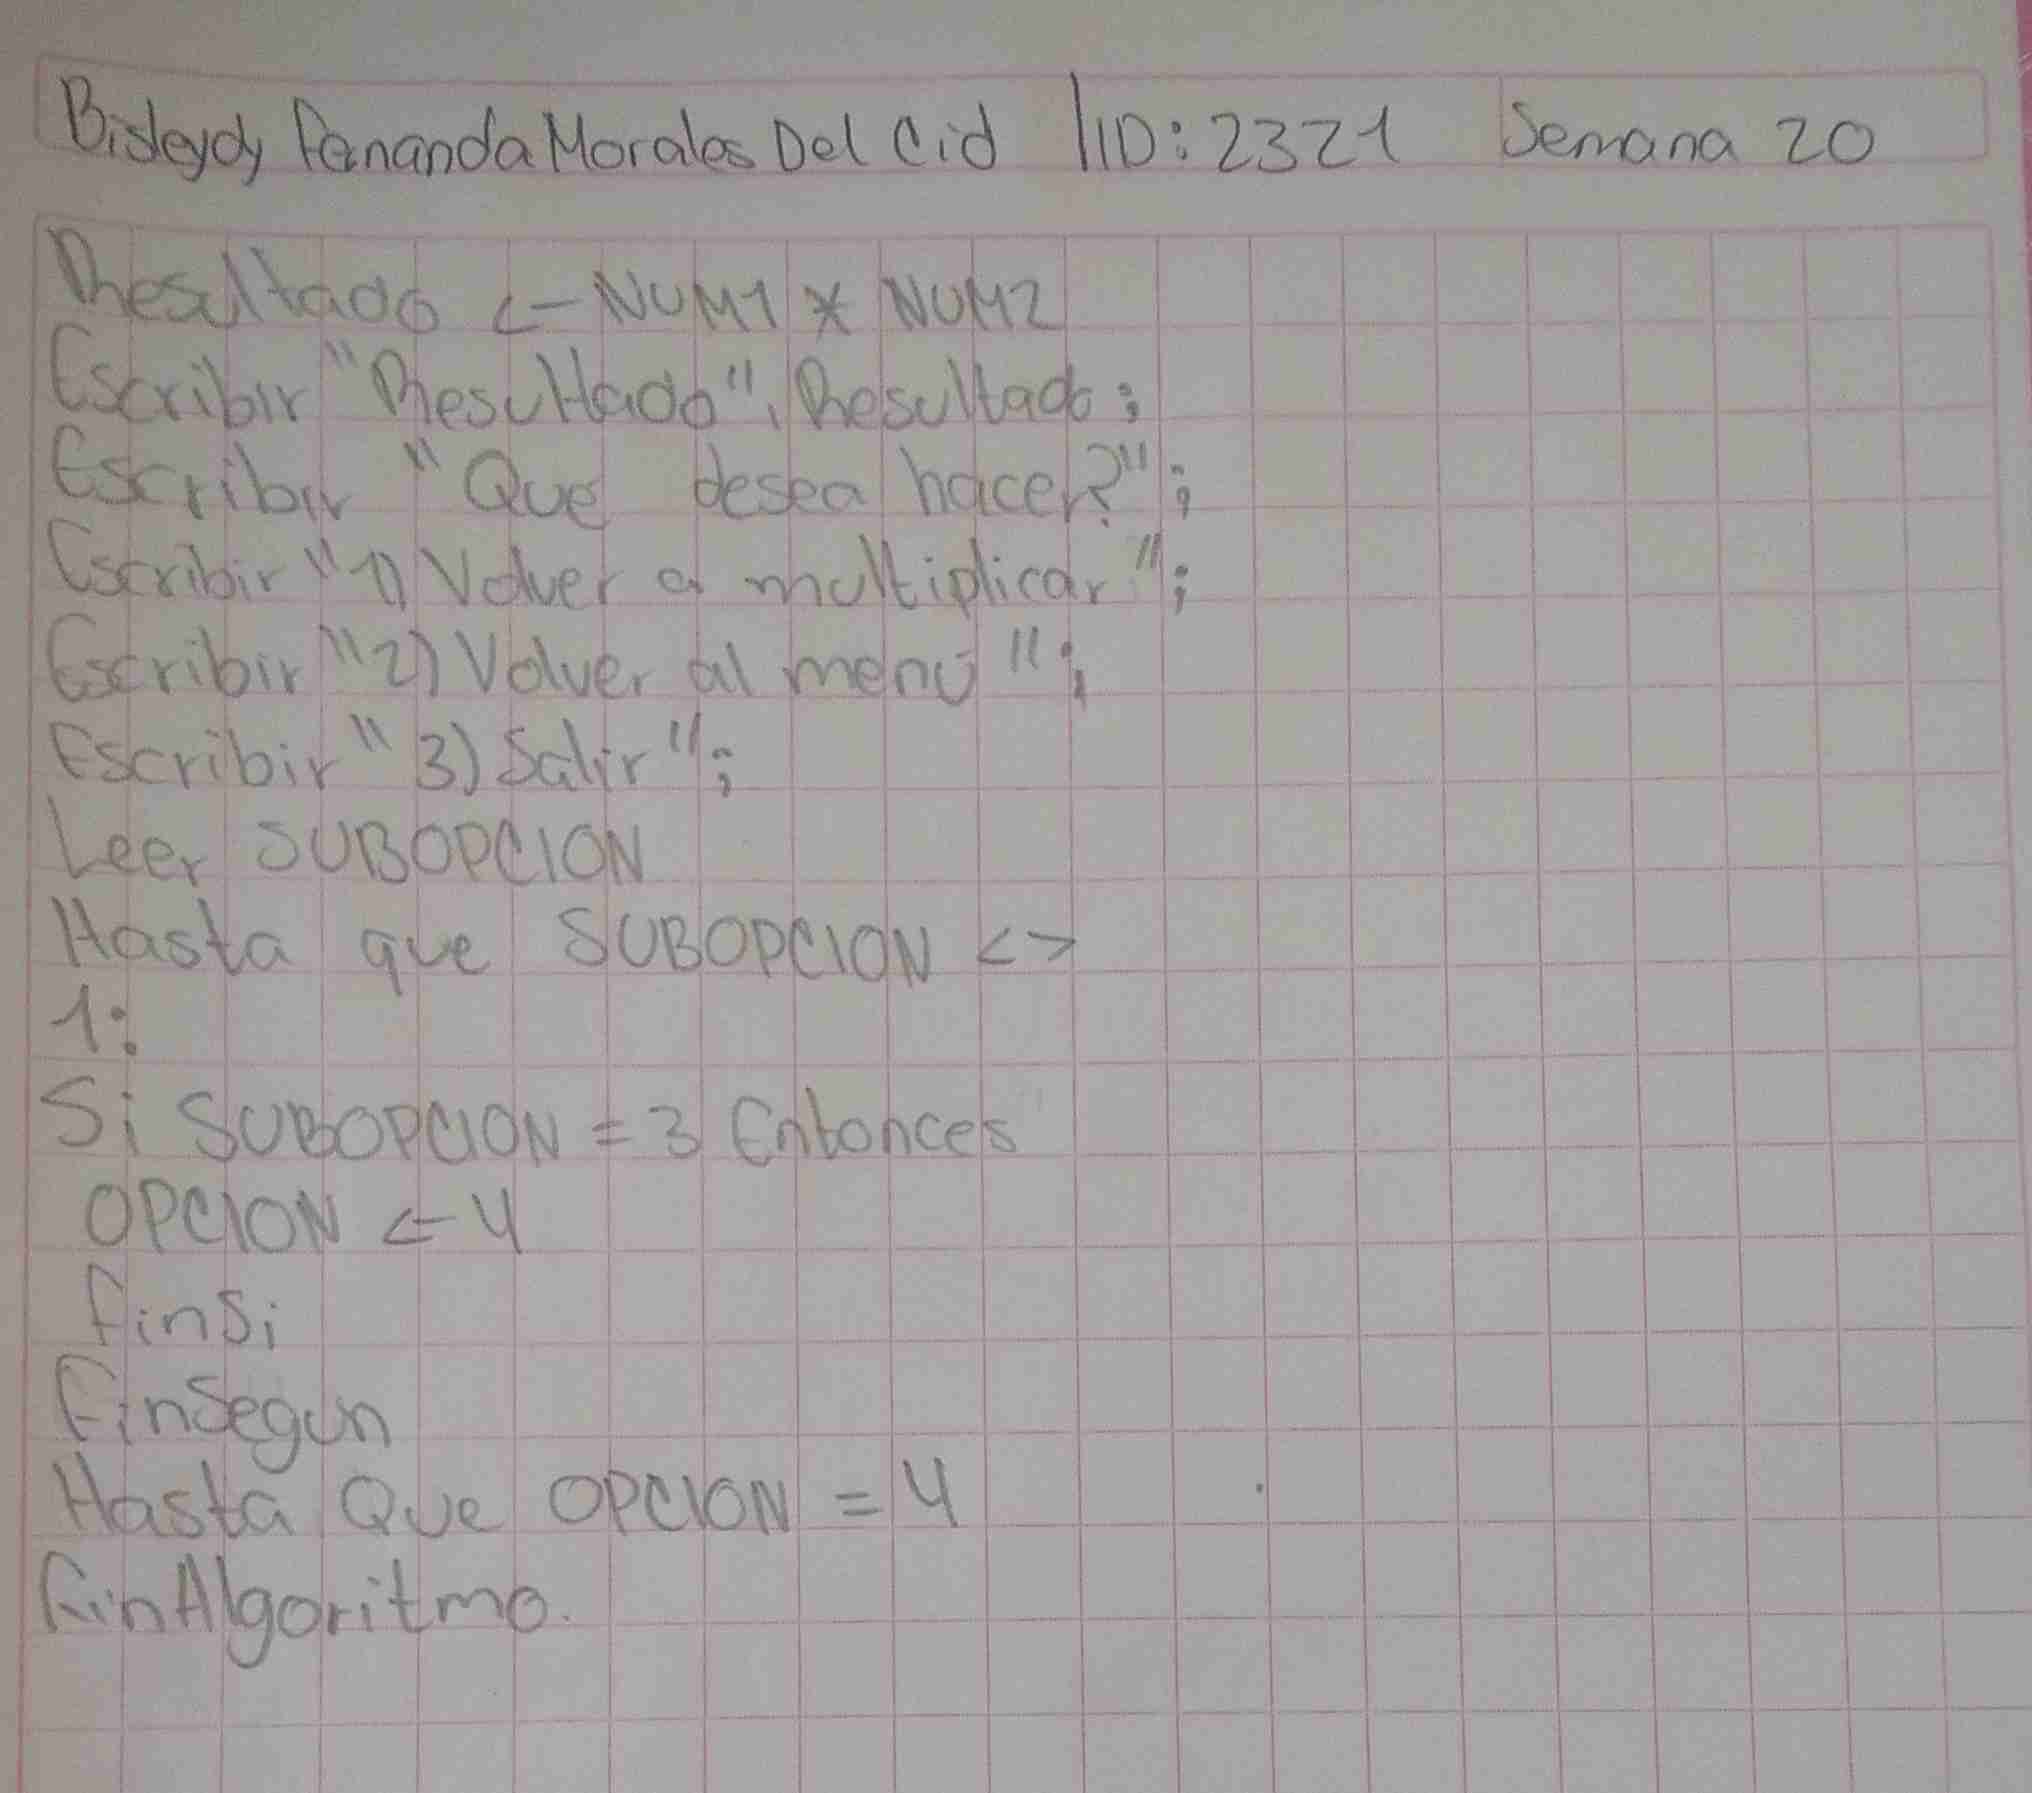 Bisleydy Fernanda Morales Del Cid ID: 2321 Semana 20
Resultado <- NUM1 * NUM2
Escribir "Resultado", Resultado;
Escribir "Que desea hacer?";
Escribir "1) Volver a multiplicar";
Escribir "2) Volver al menú";
Escribir "3) Salir";
Leer SUBOPCION
Hasta que SUBOPCION <>
1:
Si SUBOPCION = 3 Entonces
OPCION <- 4
FinSi
FinSegun
Hasta Que OPCION = 4
FinAlgoritmo.